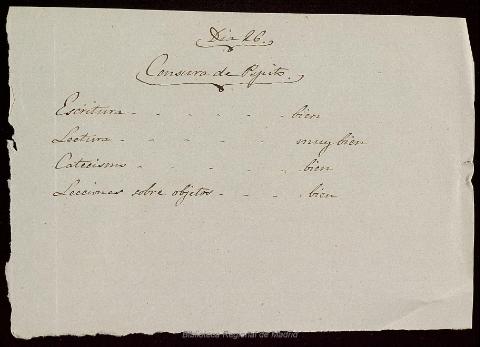 Dia 26.
Censura de Pepito.
Escritura - - - - - - bien
Lectura - - - - - - muy bien
Catecismo - - - - - bien
Lecciones sobre objetos - - - bien
Biblioteca Regional de Madrid